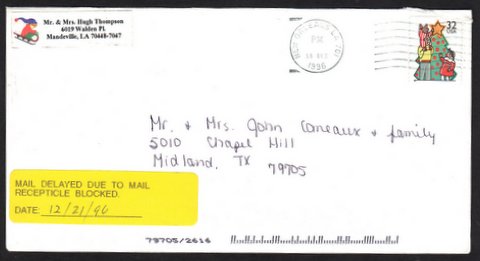 Mr. & Mrs. Hugh Thompson
6019 Walden Pl.
Mandeville, LA 70448-7047
NEW ORLEANS LA 701
PM
18 DEC
1996
32
USA
Mr. & Mrs. John Coneaux & family
5010 Chapel Hill
Midland, TX
79705
MAIL DELAYED DUE TO MAIL
RECEPTICLE BLOCKED.
DATE: 12/21/96
79705/2616